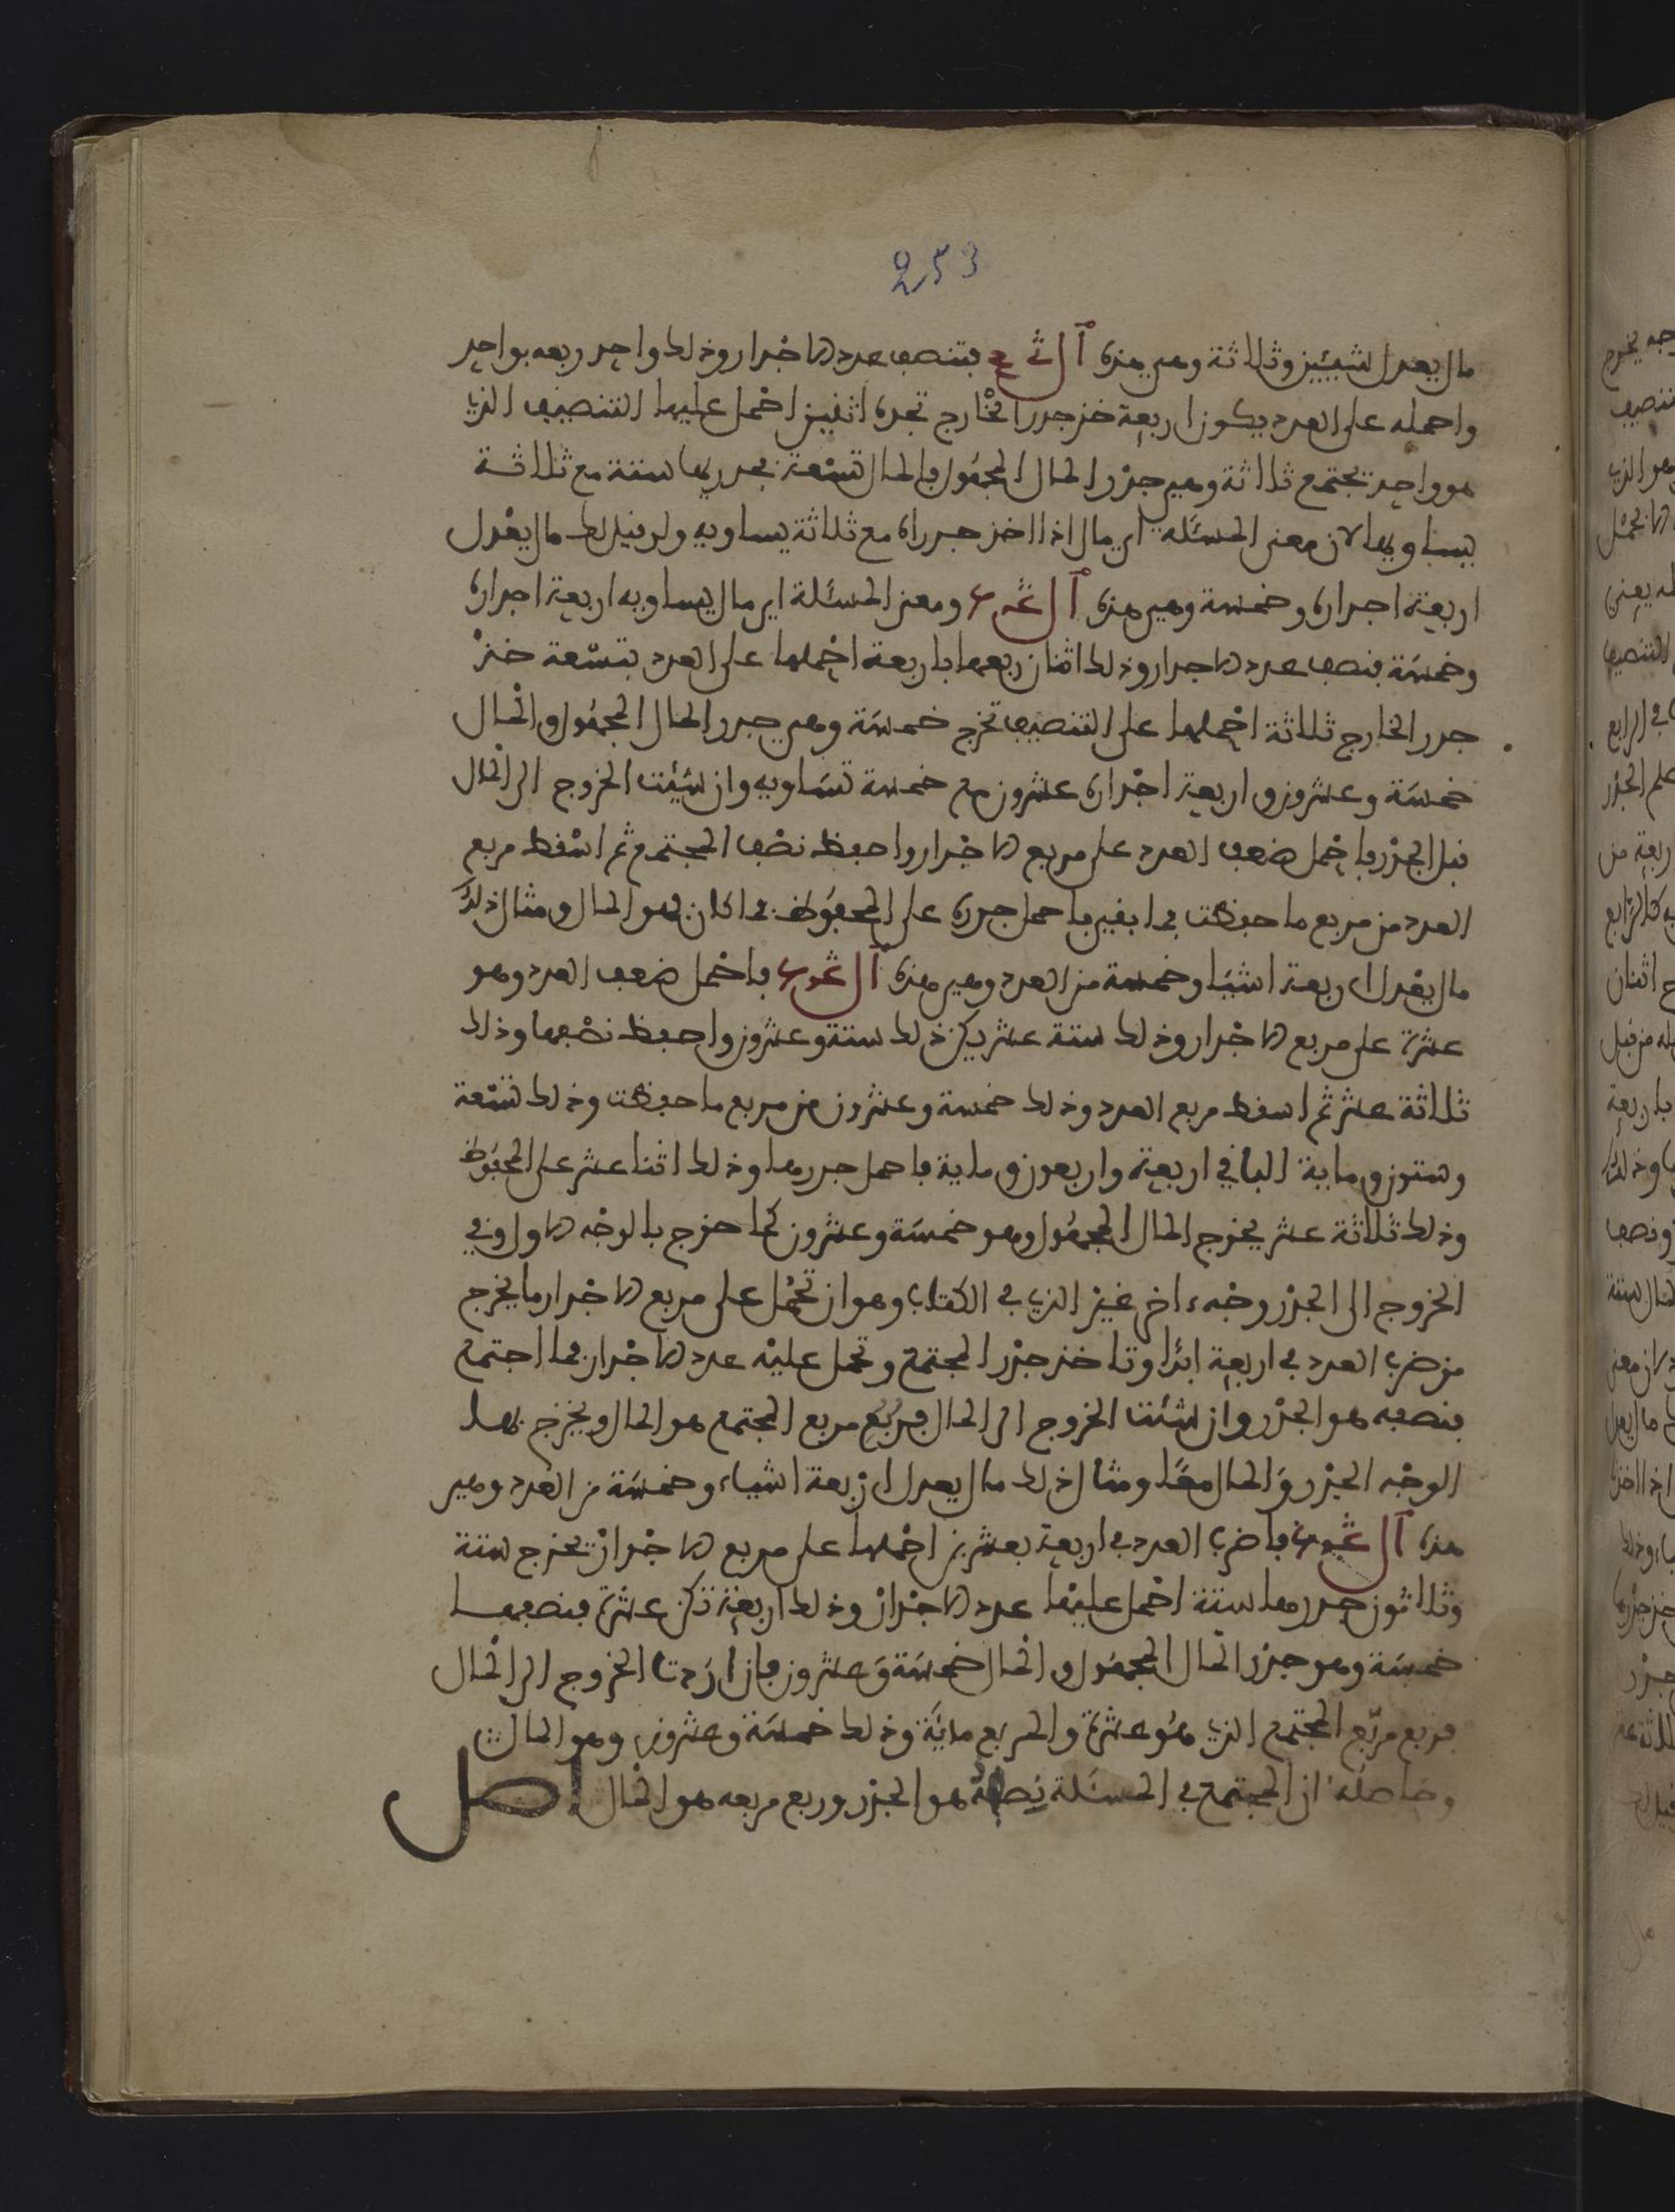 253
مال يعدل شيئين وثلاثة وهي هذه فتنصف عدد الاجذار وذلك واحد ربعه بواحد
واحمله على العدد يكون اربعة خذ جذر الخارج تجده اثنين احمل عليها التنصيف الذي
هو واحد تجتمع ثلاثة وهي جذر المال المجهول فالمال تسعة بجذريها ستة مع ثلاثة
يساويها لان معنى المسئلة اي مال اذا اخذ جذراه مع ثلاثة يساويه ولو قيل لك مال يعدل
اربعة اجذاره وخمسة وهي هذه ومعنى المسئلة اي مال يساويه اربعة اجذاره
وخمسة فنصف عدد الاجذار وذلك اثنان ربعها باربعة احملها على العدد بتسعة خذ
جذر الخارج ثلاثة احملها على التنصيف تخرج خمسة وهي جذر المال المجهول والمال
خمسة وعشرون واربعة اجذاره عشرون مع خمسة تساويه وان شئت الخروج الى المال
قبل الجذر فاحمل ضعف العدد على مربع الاجذار واحفظ نصف المجتمع ثم اسقط مربع
العدد من مربع ما حفظت فما بقي فاحمل جذره على المحفوظ فما كان فهو المال ومثال ذلك
مال يعدل اربعة اشيا وخمسة من العدد وهي هذه فاحمل ضعف العدد وهو
عشرة على مربع الاجذار وذلك ستة عشر يكن ذلك ستة وعشرون واحفظ نصفها وذلك
ثلاثة عشر ثم اسقط مربع العدد وذلك خمسة وعشرون من مربع ما حفظت وذلك تسعة
وستون وماية الباقي اربعة واربعون وماية فاحمل جذرها وذلك اثنا عشر على المحفوظ
وذلك ثلاثة عشر يخرج المال المجهول وهو خمسة وعشرون كما خرج بالوجه الاول وفي
الخروج الى الجذر وجه ءاخر غير الذي في الكتاب وهو ان تحمل على مربع الاجذار ما يخرج
من ضرب العدد في اربعة ابدا وتاخذ جذر المجتمع وتحمل عليه عدد الاجذار فما اجتمع
فنصفه هو الجذر وان شئت الخروج الى المال فربع مربع المجتمع هو المال ويخرج بهذا
الوجه الجذر والمال معا ومثال ذلك مال يعدل اربعة اشياء وخمسة من العدد وهي
هذه فاضرب العدد في اربعة بعشرين احملها على مربع الاجذار يخرج ستة
وثلاثون جذرها ستة احمل عليها عدد الاجذار وذلك اربعة تكن عشرة فنصفها
خمسة وهو جذر المال المجهول والمال خمسة وعشرون فان اردت الخروج الى المال
فربع مربع المجتمع الذي هو عشرة والمربع ماية وذلك خمسة وعشرون وهو المال
وحاصله ان المجتمع في المسئلة نصفه هو الجذر وربع مربعه هو المال اصل